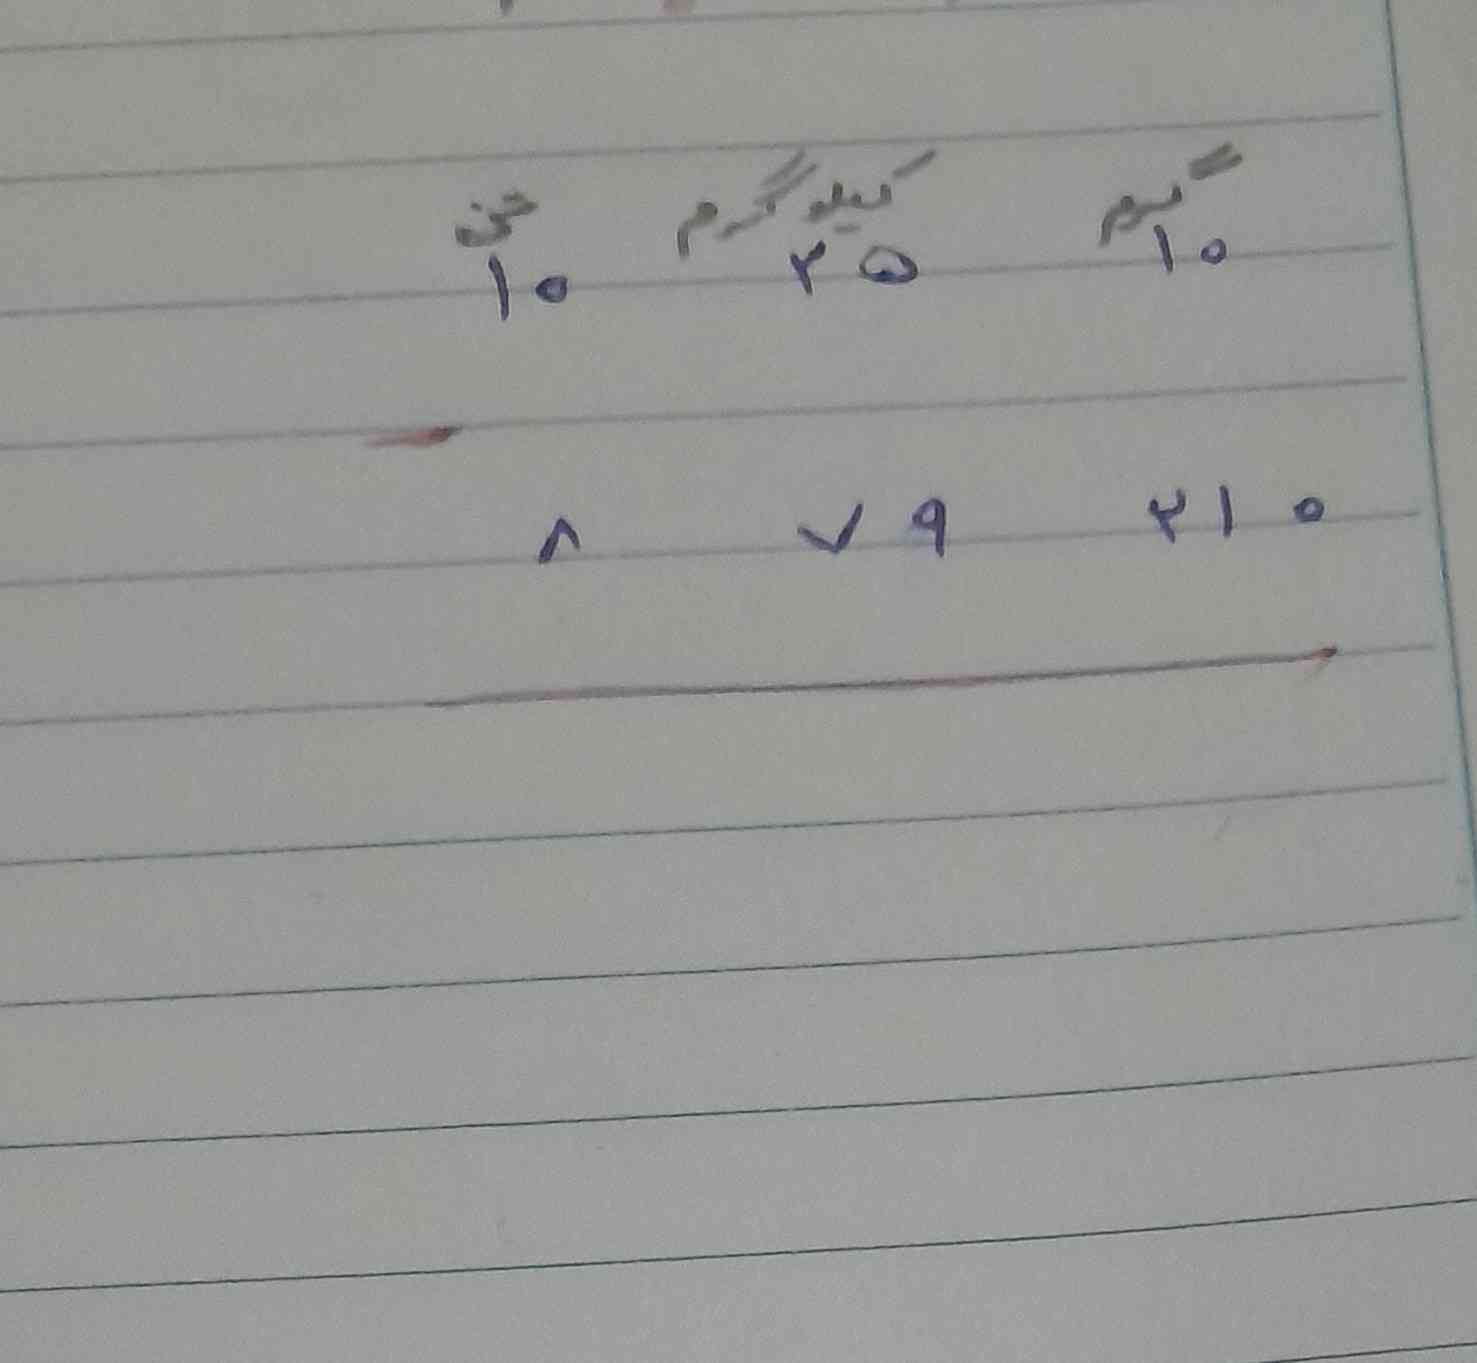 گرم کیلوگرم تن
۱۰ ۲۵ ۱۰
-
۲۱۰ ۷۹ ۸